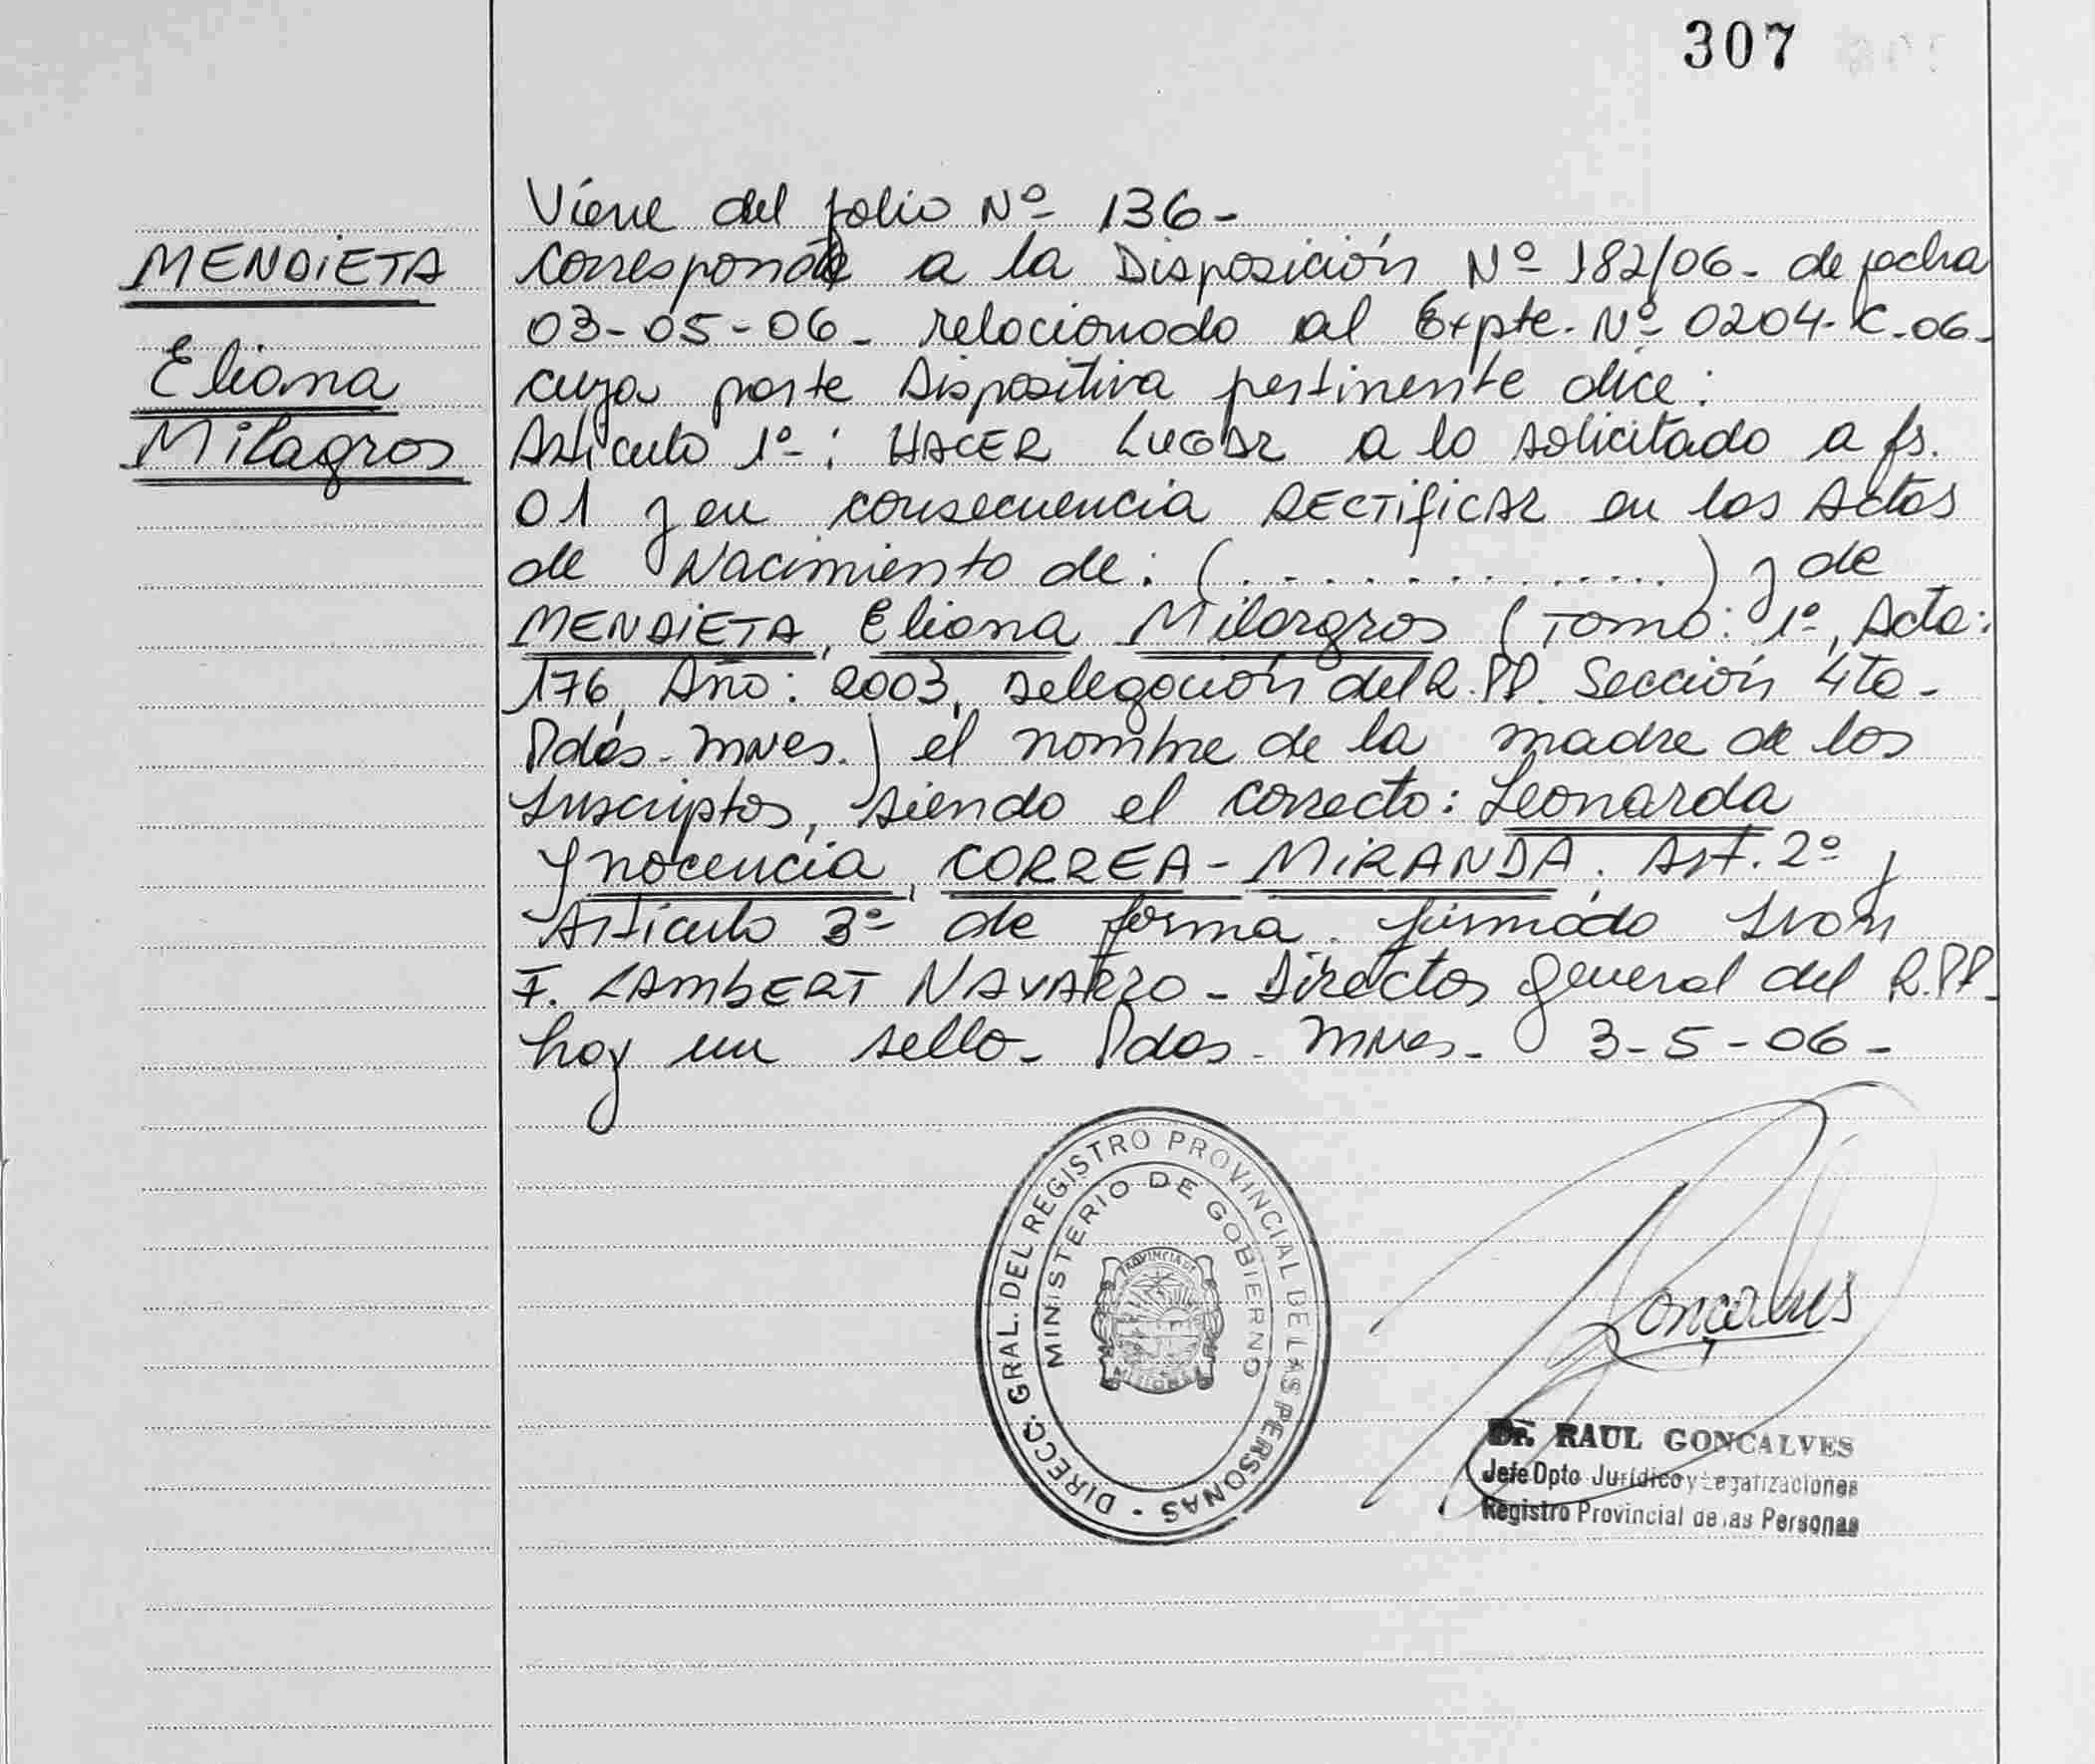 307
MENDIETA
Eliana
Milagros
Viene del folio Nº 136-
Corresponde a la Disposición Nº 182/06- de fecha
03-05-06- relacionado al Expte. Nº 0204-C-06-
cuya parte Dispositiva pertinente dice:
Artículo 1º: HACER LUGAR a lo solicitado a fs.
01 y en consecuencia RECTIFICAR en las Actas
de Nacimiento de: (..............) y de
MENDIETA, Eliana Milargros (Tomo: 1º, Acta:
176, Año: 2003, Delegación del R.PP. Sección 4ta-
Pdas- Mnes.) el nombre de la madre de los
Inscriptos, siendo el correcto: Leonarda
Inocencia, CORREA-MIRANDA. Art. 2º y
Artículo 3º de forma. firmado Ivan
F. LAMBERT NAVARRO- Director General del R.PP-
hay un sello- Pdas- Mnes- 3-5-06-
DIRECC. GRAL. DEL REGISTRO PROVINCIAL DE LAS PERSONAS -
MINISTERIO DE GOBIERNO
PROVINCIA DE
MISIONES
Goncalves
Dr. RAUL GONCALVES
Jefe Dpto Jurídico y Legalizaciones
Registro Provincial de las Personas